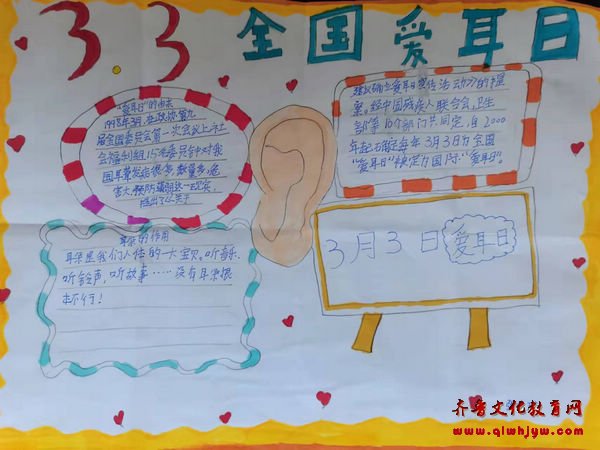 3.3 全国爱耳日
"爱耳日"的由来
1998年3月,在政协第九
届全国委员会第一次会议上,社
会福利组15名委员针对我
国耳聋发病很多、数量多、危
害大,预防薄弱这一现实,
提出了
建议确立爱耳日宣传活动的提
案。经中国残疾人联合会,卫生
部等10个部门共同定,自2000
年起确定每年3月3日为全国
"爱耳日"被定为国际"爱耳日"。
3月3日 爱耳日
耳朵的作用
耳朵是我们人体的一大宝贝。听音乐、
听铃声,听故事……没有耳朵根
本不行!
齐鲁文化教育网
www.qlwhjyw.com